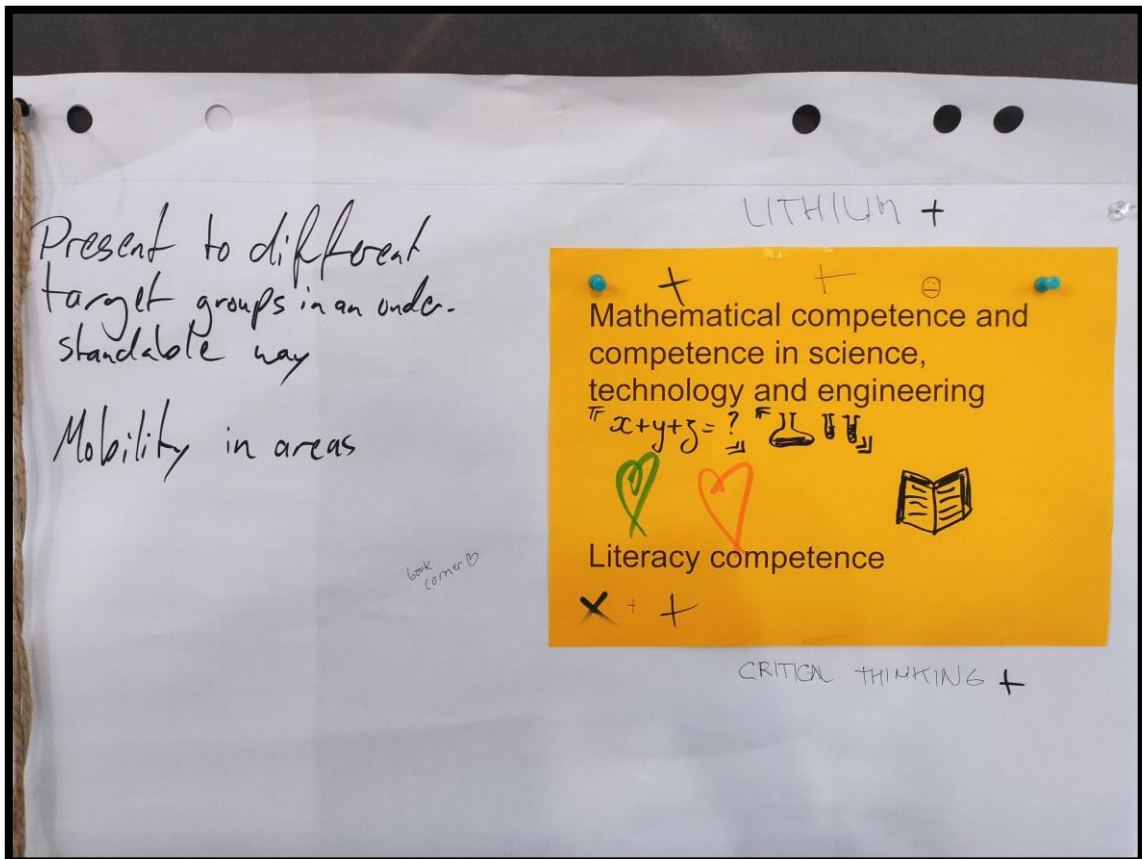 Present to different
target groups in an under-
standable way
Mobility in areas
book
corner ♡
LITHIUM +
+ +
Mathematical competence and
competence in science,
technology and engineering
x+y+z= ?
Literacy competence
x + +
CRITICAL THINKING +